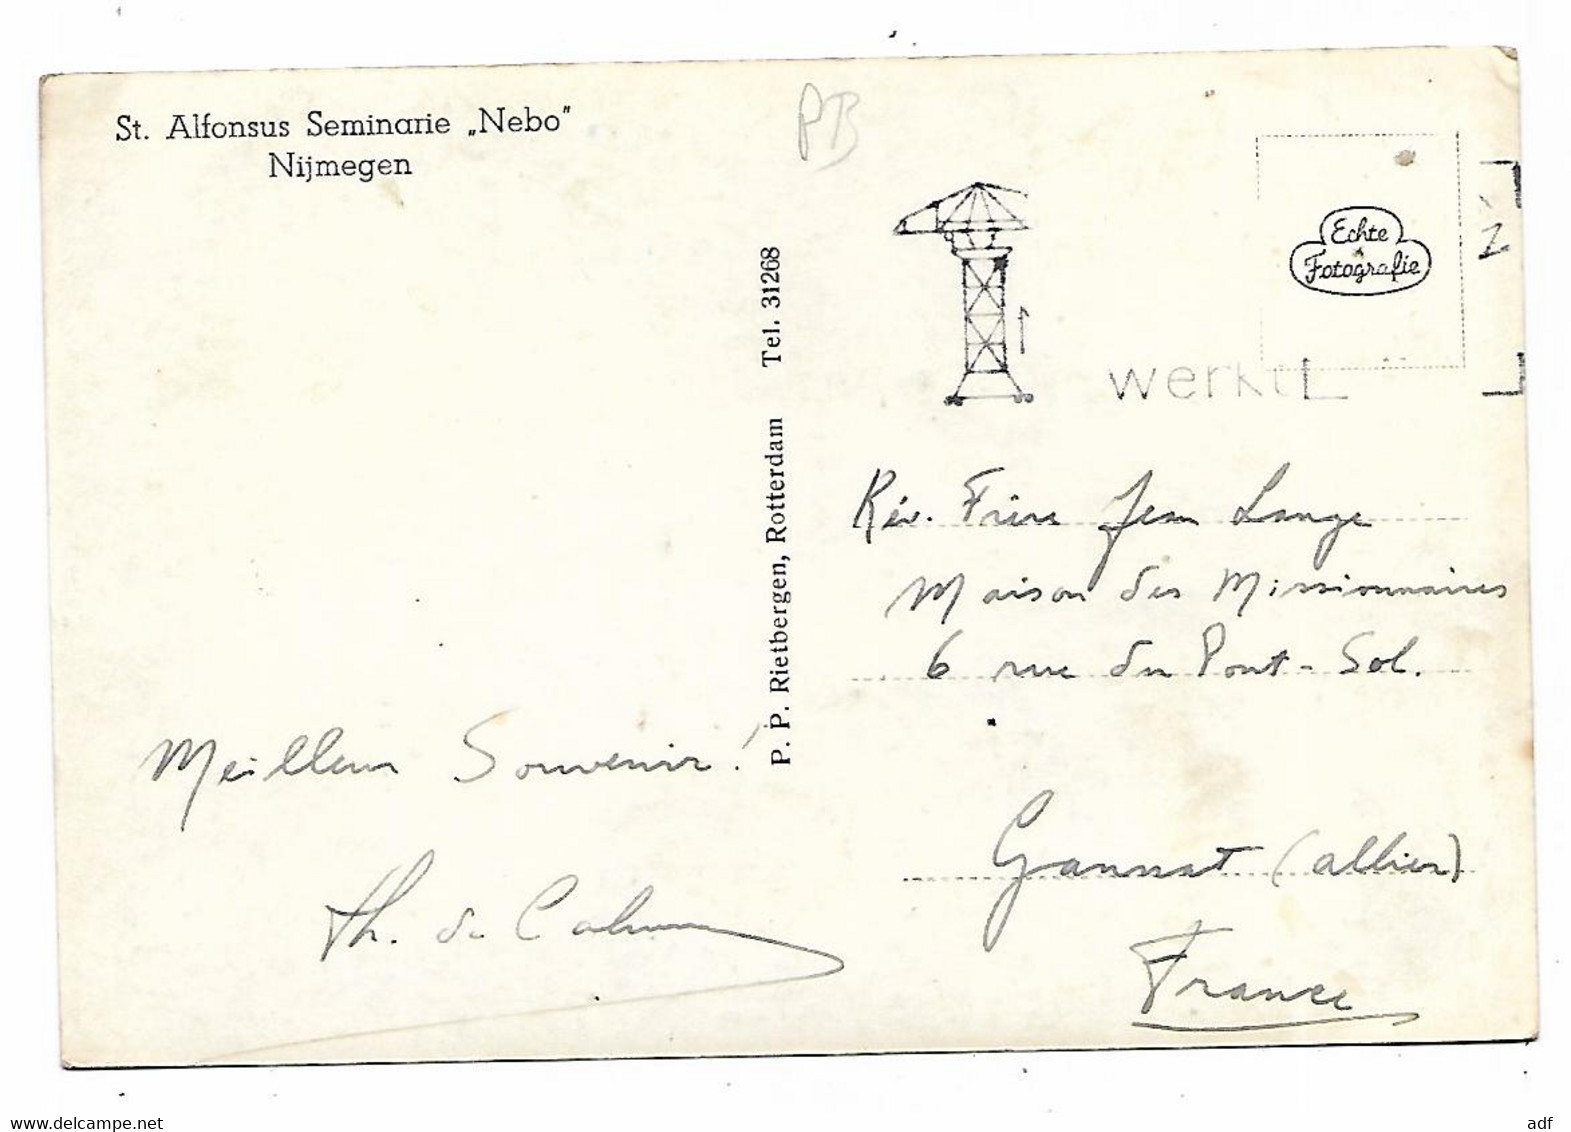 St. Alfonsus Seminarie „Nebo"
Nijmegen
PB
Echte
Fotografie
werkt
P. P. Rietbergen, Rotterdam Tel. 31268
Rév. Frère Jean Lange
Maison des Missionnaires
6 rue du Pont-Sol.
Gannat (Allier)
France
Meilleur Souvenir!
Th. de
www.delcampe.net
adf